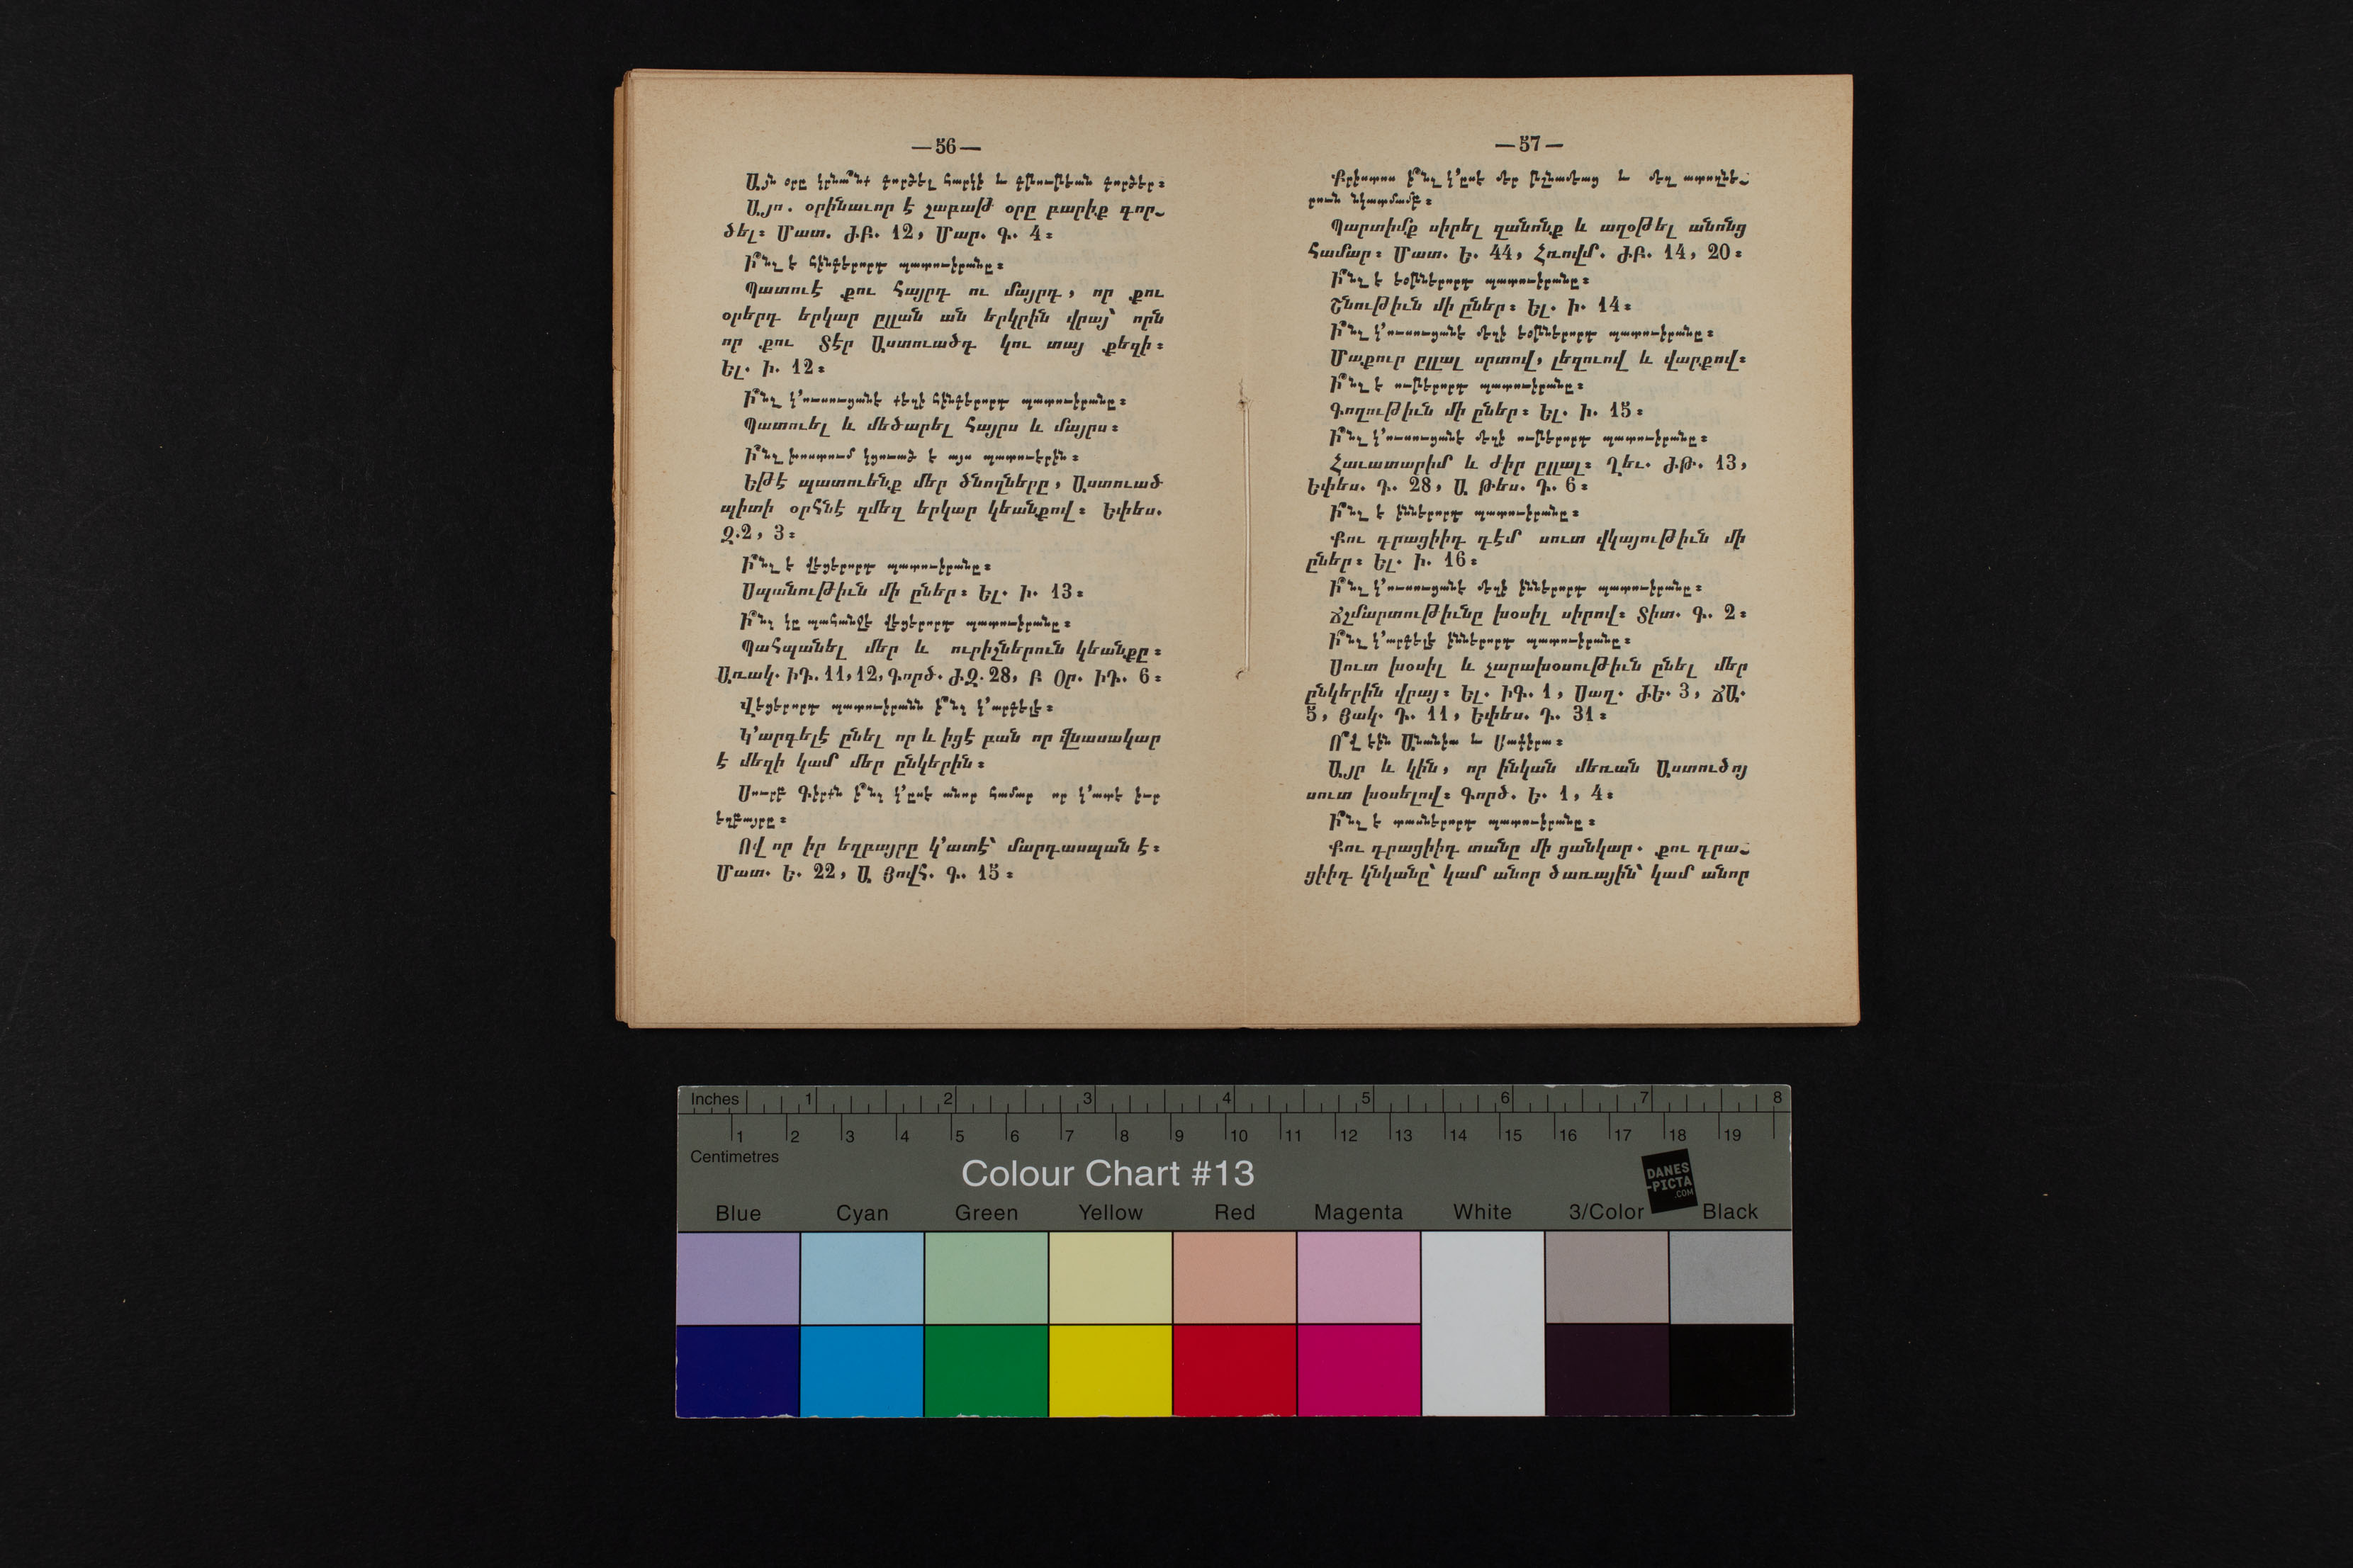 —56—
Այն օրը կրնա՞նք գործել հարկի և գթութեան գործեր։
Այո. օրինաւոր է շաբաթ օրը բարիք գոր֊
ծել։ Մատ. ԺԲ. 12, Մար. Գ. 4։
Ի՞նչ է հինգերորդ պատուիրանը։
Պատուէ քու հայրդ ու մայրդ, որ քու
օրերդ երկար ըլլան ան երկրին վրայ՝ որն
որ քու Տէր Աստուածդ կու տայ քեզի։
Ել. Ի. 12։
Ի՞նչ կ՚ուսուցանէ մեզի հինգերորդ պատուիրանը։
Պատուել և մեծարել հայրս և մայրս։
Ի՞նչ խոստում կցուած է այս պատուէրին։
Եթէ պատուենք մեր ծնողները, Աստուած
պիտի օրհնէ զմեզ երկար կեանքով։ Եփես.
Զ.2, 3։
Ի՞նչ է վեցերորդ պատուիրանը։
Սպանութիւն մի ըներ։ Ել. Ի. 13։
Ի՞նչ կը պահանջէ վեցերորդ պատուիրանը։
Պահպանել մեր և ուրիշներուն կեանքը։
Առակ. ԻԴ. 11,12, Գործ. ԺԶ. 28, Բ Օր. ԻԴ. 6։
Վեցերորդ պատուիրանն ի՞նչ կ՚արգելէ։
Կ՚արգելէ ընել որ և իցէ բան որ վնասակար
է մեզի կամ մեր ընկերին։
Սուրբ Գիրքն ի՞նչ կ՚ըսէ անոր համար որ կ՚ատէ իւր
եղբայրը։
Ով որ իր եղբայրը կ՚ատէ՝ մարդասպան է։
Մատ. Ե. 22, Ա Յովհ. Գ. 15։
—57—
Քրիստոս ի՞նչ կ՚ըսէ մեր թշնամեաց և մեզ ատողնե֊
րուն նկատմամբ։
Պարտիմք սիրել զանոնք և աղօթել անոնց
համար։ Մատ. Ե. 44, Հռովմ. ԺԲ. 14, 20։
Ի՞նչ է եօթներորդ պատուիրանը։
Շնութիւն մի ըներ։ Ել. Ի. 14։
Ի՞նչ կ՚ուսուցանէ մեզի եօթներորդ պատուիրանը։
Մաքուր ըլլալ սրտով, լեզուով և վարքով։
Ի՞նչ է ութերորդ պատուիրանը։
Գողութիւն մի ըներ։ Ել. Ի. 15։
Ի՞նչ կ՚ուսուցանէ մեզի ութերորդ պատուիրանը։
Հաւատարիմ և ժիր ըլլալ։ Ղեւ. ԺԹ. 13,
Եփես. Դ. 28, Ա Թես. Դ. 6։
Ի՞նչ է իններորդ պատուիրանը։
Քու դրացիիդ դէմ սուտ վկայութիւն մի
ըներ։ Ել. Ի. 16։
Ի՞նչ կ՚ուսուցանէ մեզի իններորդ պատուիրանը։
Ճշմարտութիւնը խօսիլ սիրով։ Տիտ. Գ. 2։
Ի՞նչ կ՚արգելէ իններորդ պատուիրանը։
Սուտ խօսիլ և չարախօսութիւն ընել մեր
ընկերին վրայ։ Ել. ԻԳ. 1, Սաղ. ԺԵ. 3, ՃԱ.
5, Յակ. Դ. 11, Եփես. Դ. 31։
Ո՞վ էին Անանիա և Սափիրա։
Այր և կին, որ ինկան մեռան Աստուծոյ
սուտ խօսելով։ Գործ. Ե. 1, 4։
Ի՞նչ է տասներորդ պատուիրանը։
Քու դրացիիդ տանը մի ցանկար. քու դրա֊
ցիիդ կնկանը՝ կամ անոր ծառային՝ կամ անոր
Inches 1 2 3 4 5 6 7 8
1 2 3 4 5 6 7 8 9 10 11 12 13 14 15 16 17 18 19
Centimetres
Colour Chart #13
DANES
-PICTA
.COM
Blue Cyan Green Yellow Red Magenta White 3/Color Black